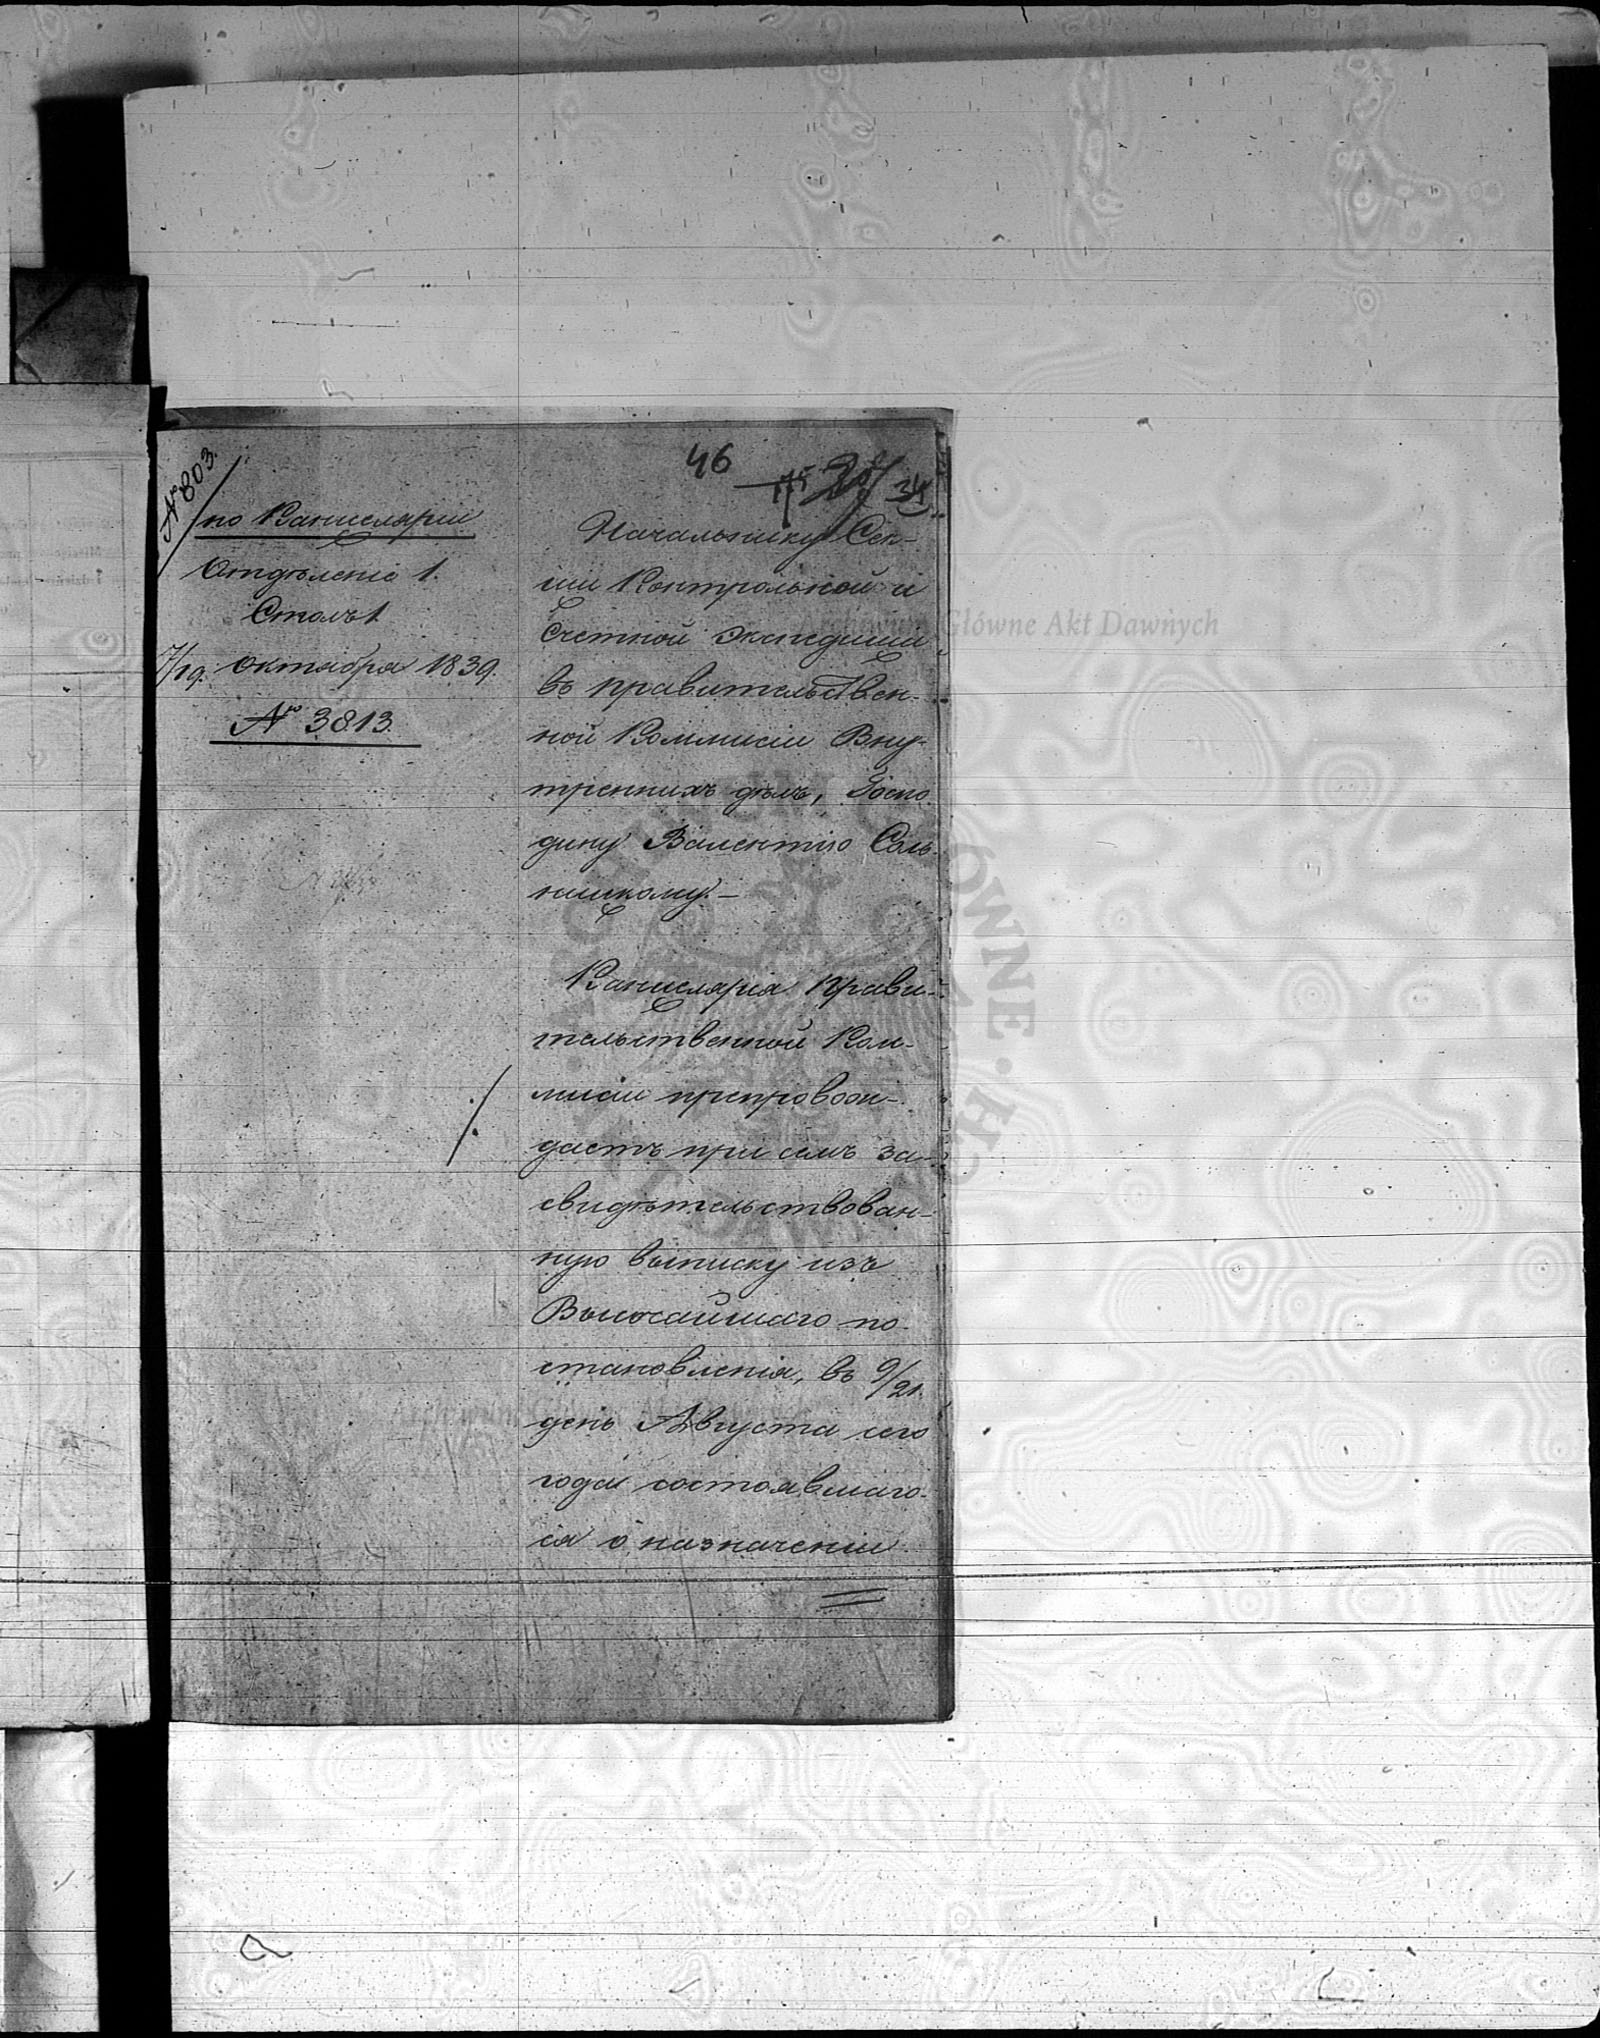 46
34
№ 803.
по Канцеляріи
Отдѣленіе 1.
Столъ 1
7/19. Октября 1839.
№ 3813.
Начальнику Сек-
ціи Контрольной и
Счетной Экспедиціи
въ правительствен-
ной Коммисіи Вну-
тренихъ дѣлъ, Госпо
дину Валентію Соль-
ницкому.-
Канцелярія Прави-
тельственной Ком-
мисіи препровож-
даетъ при семъ за-
свидѣтельствован-
ную выписку изъ
Высочайшаго по-
становленія, въ 9/21.
день Августа сего
года состоявшаго-
ся о назначеніи
Archiwum Główne Akt Dawnych